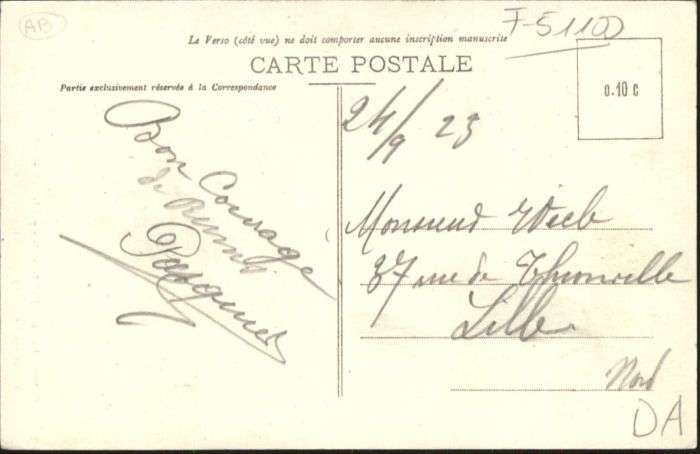 AB
F-51100
Le Verso (côté vue) ne doit comporter aucune inscription manuscrite
CARTE POSTALE
Partie exclusivement réservée à la Correspondance
0.10 c
24/9 23
Bon Courage
de Reims
Pasquier
Monsieur Wieb
37 rue de Thionville
Lille
Nord
DA